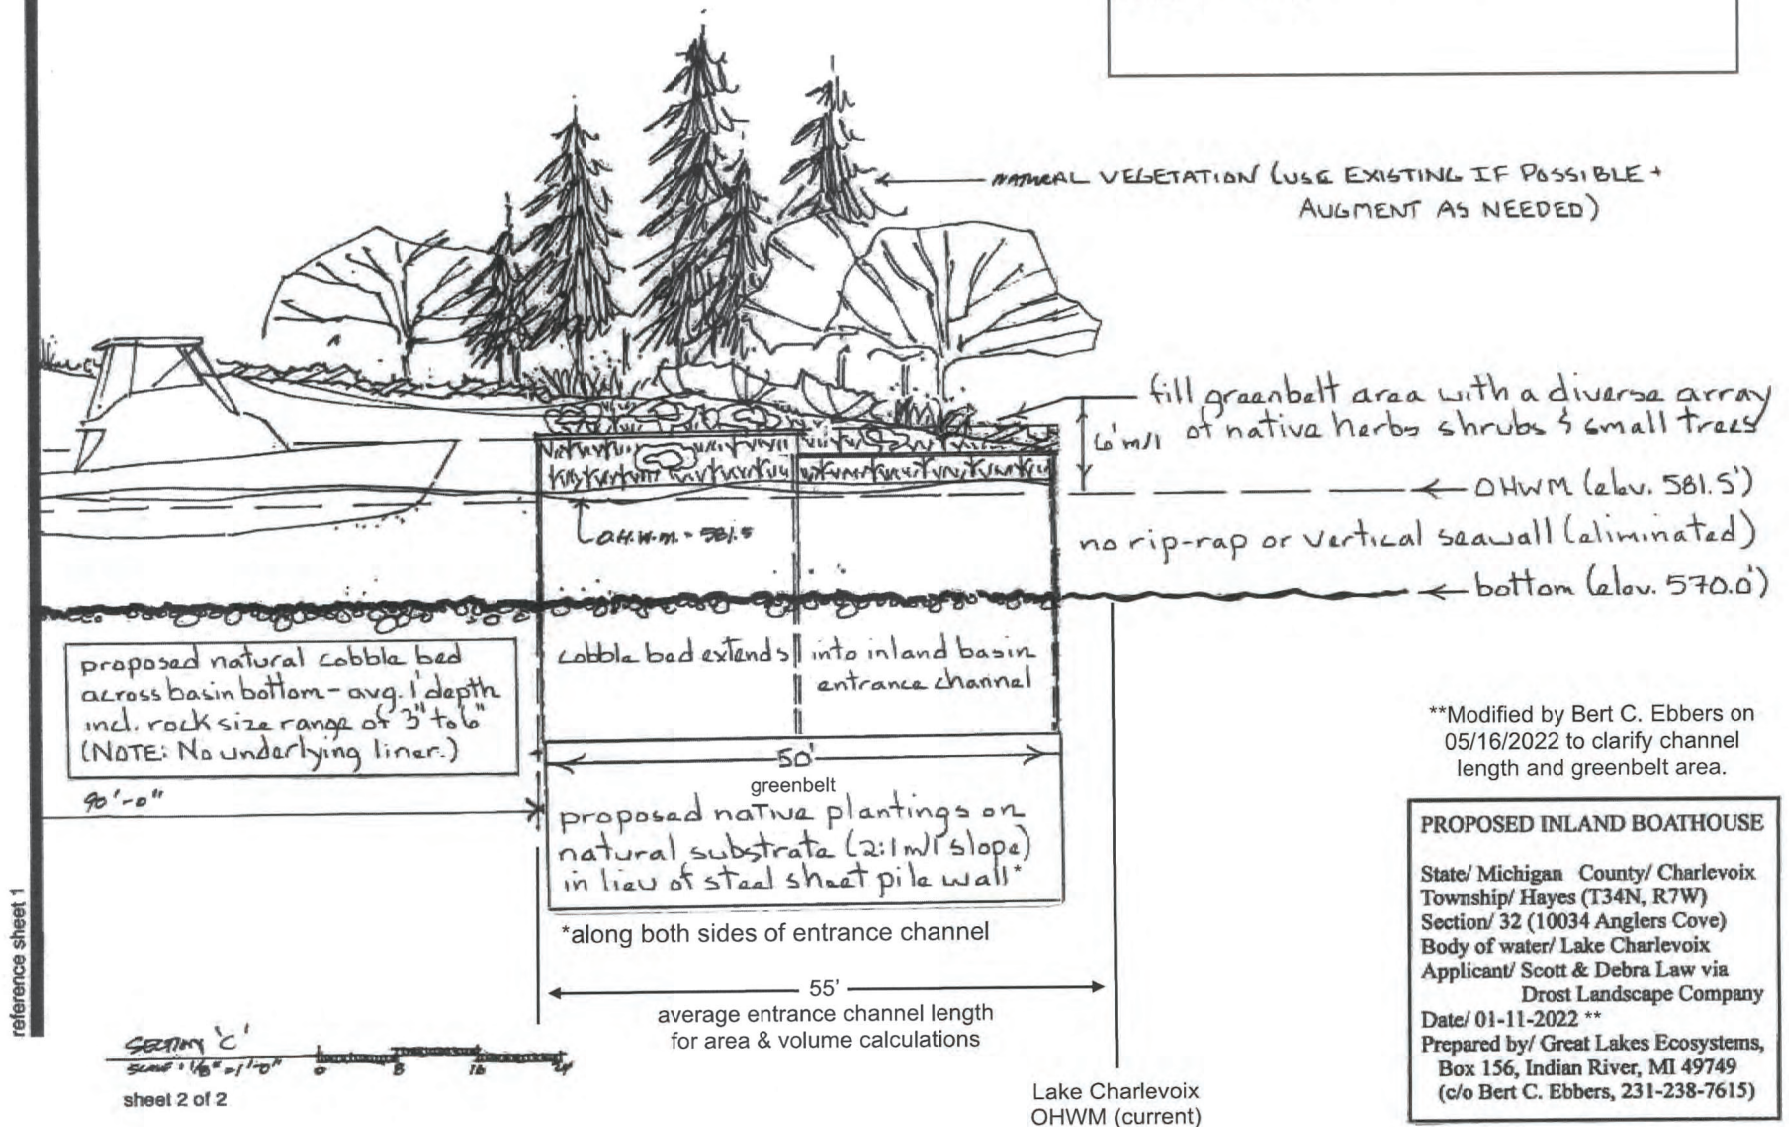 NATURAL VEGETATION (USE EXISTING IF POSSIBLE +
AUGMENT AS NEEDED)
fill greenbelt area with a diverse array
of native herbs shrubs & small trees
6' m/l
OHWM (elev. 581.5')
O.H.W.M. = 581.5
no rip-rap or vertical seawall (eliminated)
bottom (elev. 570.0')
proposed natural cobble bed
across basin bottom - avg. 1' depth
incl. rock size range of 3" to 6"
(NOTE: No underlying liner.)
cobble bed extends into inland basin
entrance channel
90'-0"
50'
greenbelt
proposed native plantings on
natural substrate (2:1 m/l slope)
in lieu of steel sheet pile wall*
*along both sides of entrance channel
55'
average entrance channel length
for area & volume calculations
Lake Charlevoix
OHWM (current)
**Modified by Bert C. Ebbers on
05/16/2022 to clarify channel
length and greenbelt area.
PROPOSED INLAND BOATHOUSE
State/ Michigan County/ Charlevoix
Township/ Hayes (T34N, R7W)
Section/ 32 (10034 Anglers Cove)
Body of water/ Lake Charlevoix
Applicant/ Scott & Debra Law via
Drost Landscape Company
Date/ 01-11-2022 **
Prepared by/ Great Lakes Ecosystems,
Box 156, Indian River, MI 49749
(c/o Bert C. Ebbers, 231-238-7615)
reference sheet 1
SECTION 'C'
SCALE: 1/8" = 1'-0"
0 8 16 24
sheet 2 of 2